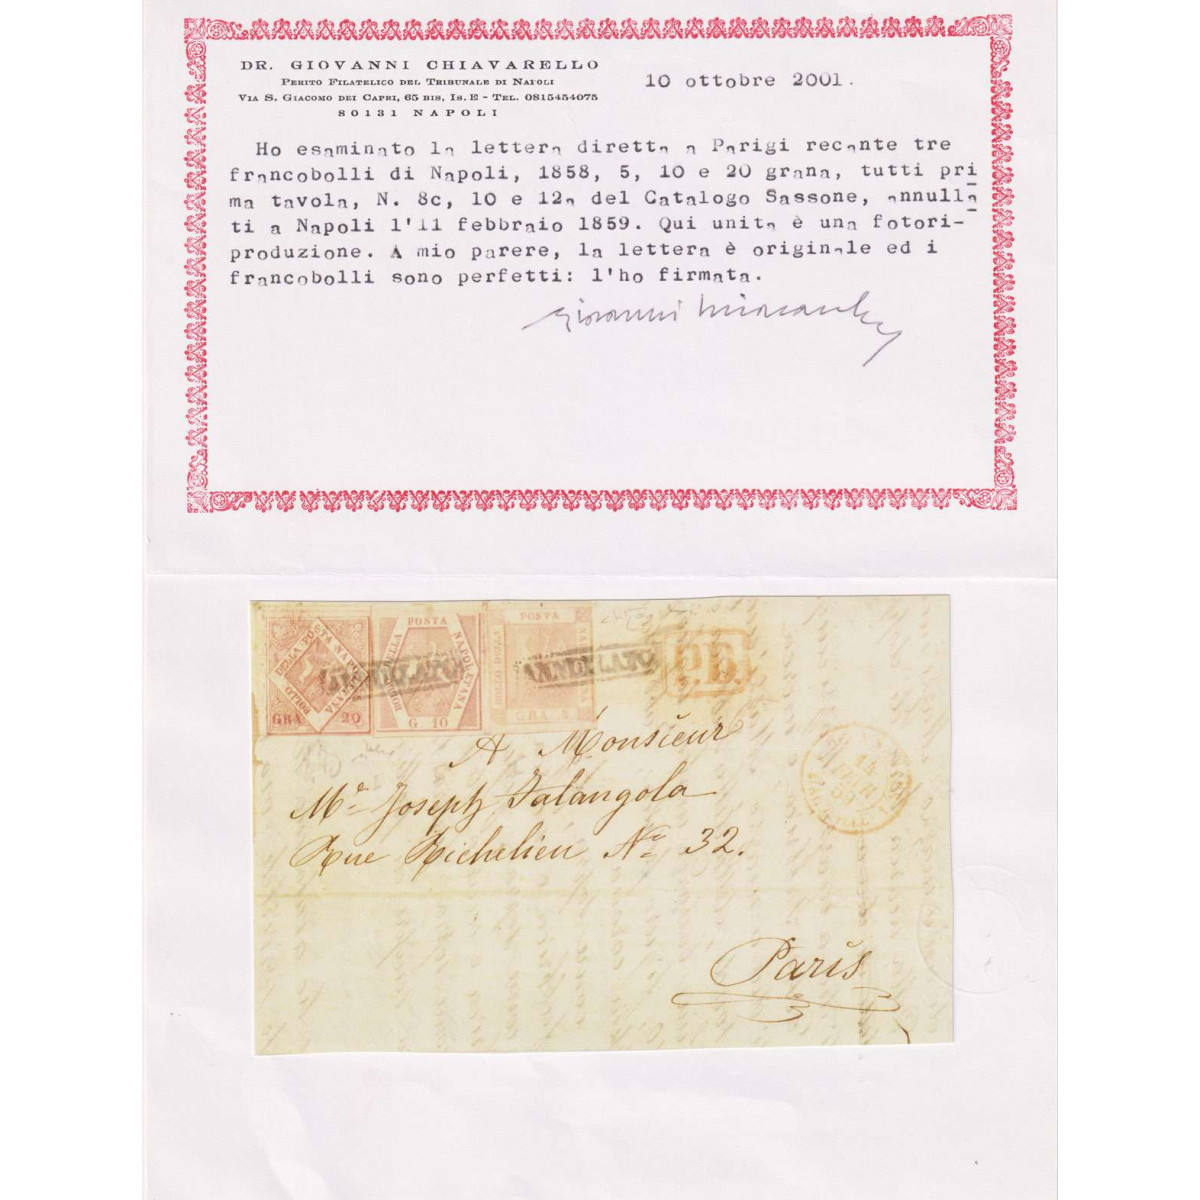 DR. GIOVANNI CHIAVARELLO
PERITO FILATELICO DEL TRIBUNALE DI NAPOLI
VIA S. GIACOMO DEI CAPRI, 65 BIS, IS. E - TEL. 0815454075
80131 NAPOLI
10 ottobre 2001.
Ho esaminato la lettera diretta a Parigi recante tre
francobolli di Napoli, 1858, 5, 10 e 20 grana, tutti pri
ma tavola, N. 8c, 10 e 12a del Catalogo Sassone, annulla
ti a Napoli l'11 febbraio 1859. Qui unita è una fotori-
produzione. A mio parere, la lettera è originale ed i
francobolli sono perfetti: l'ho firmata.
BOLLO DELLA POSTA NAPOLETANA
GRA 20
BOLLO DELLA POSTA NAPOLETANA
G 10
BOLLO DELLA POSTA
GRA 5
ANNULATO
ANNULATO
P.D.
14
FEVR
59
A Monsieur
Mr Joseph Talangola
Rue Richelieu No 32.
Paris